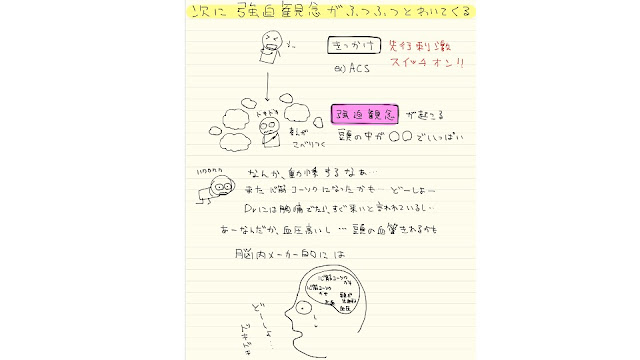 次に 強迫観念がふつふつとわいてくる
きっかけ 先行刺激
スイッチオン!!
ex) ACS
ドキドキ
強迫観念 が起こる
頭の中が〇〇でいっぱい
なんか、動悸するなぁ…
また心筋コーソクになったかも… どーしよー
Drには胸痛でたら、すぐ来いと言われているし…
あーなんだか、血圧高いし… 頭の血管きれるかも
脳内メーカー的には
心筋コーソク
心筋コーソク
どーしよ…